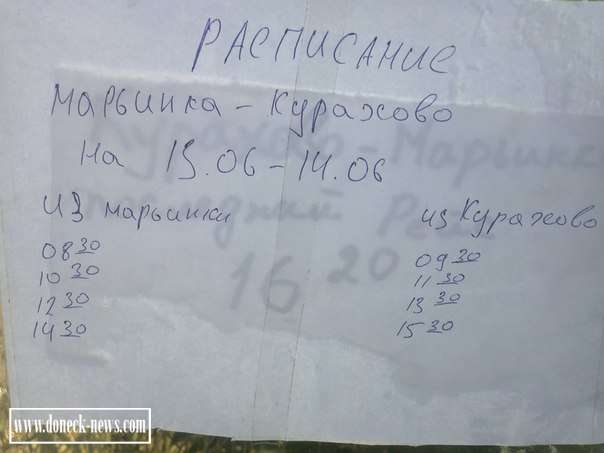 РАСПИСАНИЕ
Марьинка – Курахово
На 13.06 – 14.06
из Марьинки
из Курахово
08 30
09 30
10 30
11 30
12 30
13 30
14 30
15 30
Курахово - Марьинк
Р
16 20
www.doneck-news.com